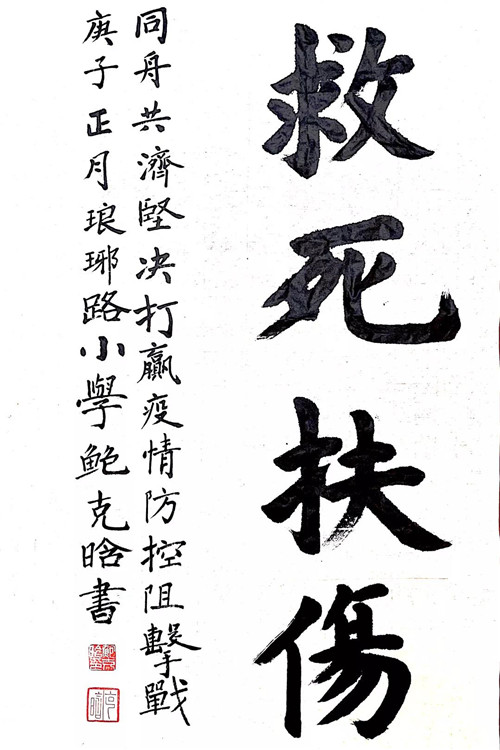 救死扶傷
同舟共濟堅决打贏疫情防控阻擊戰
庚子正月琅琊路小學鲍克晗書